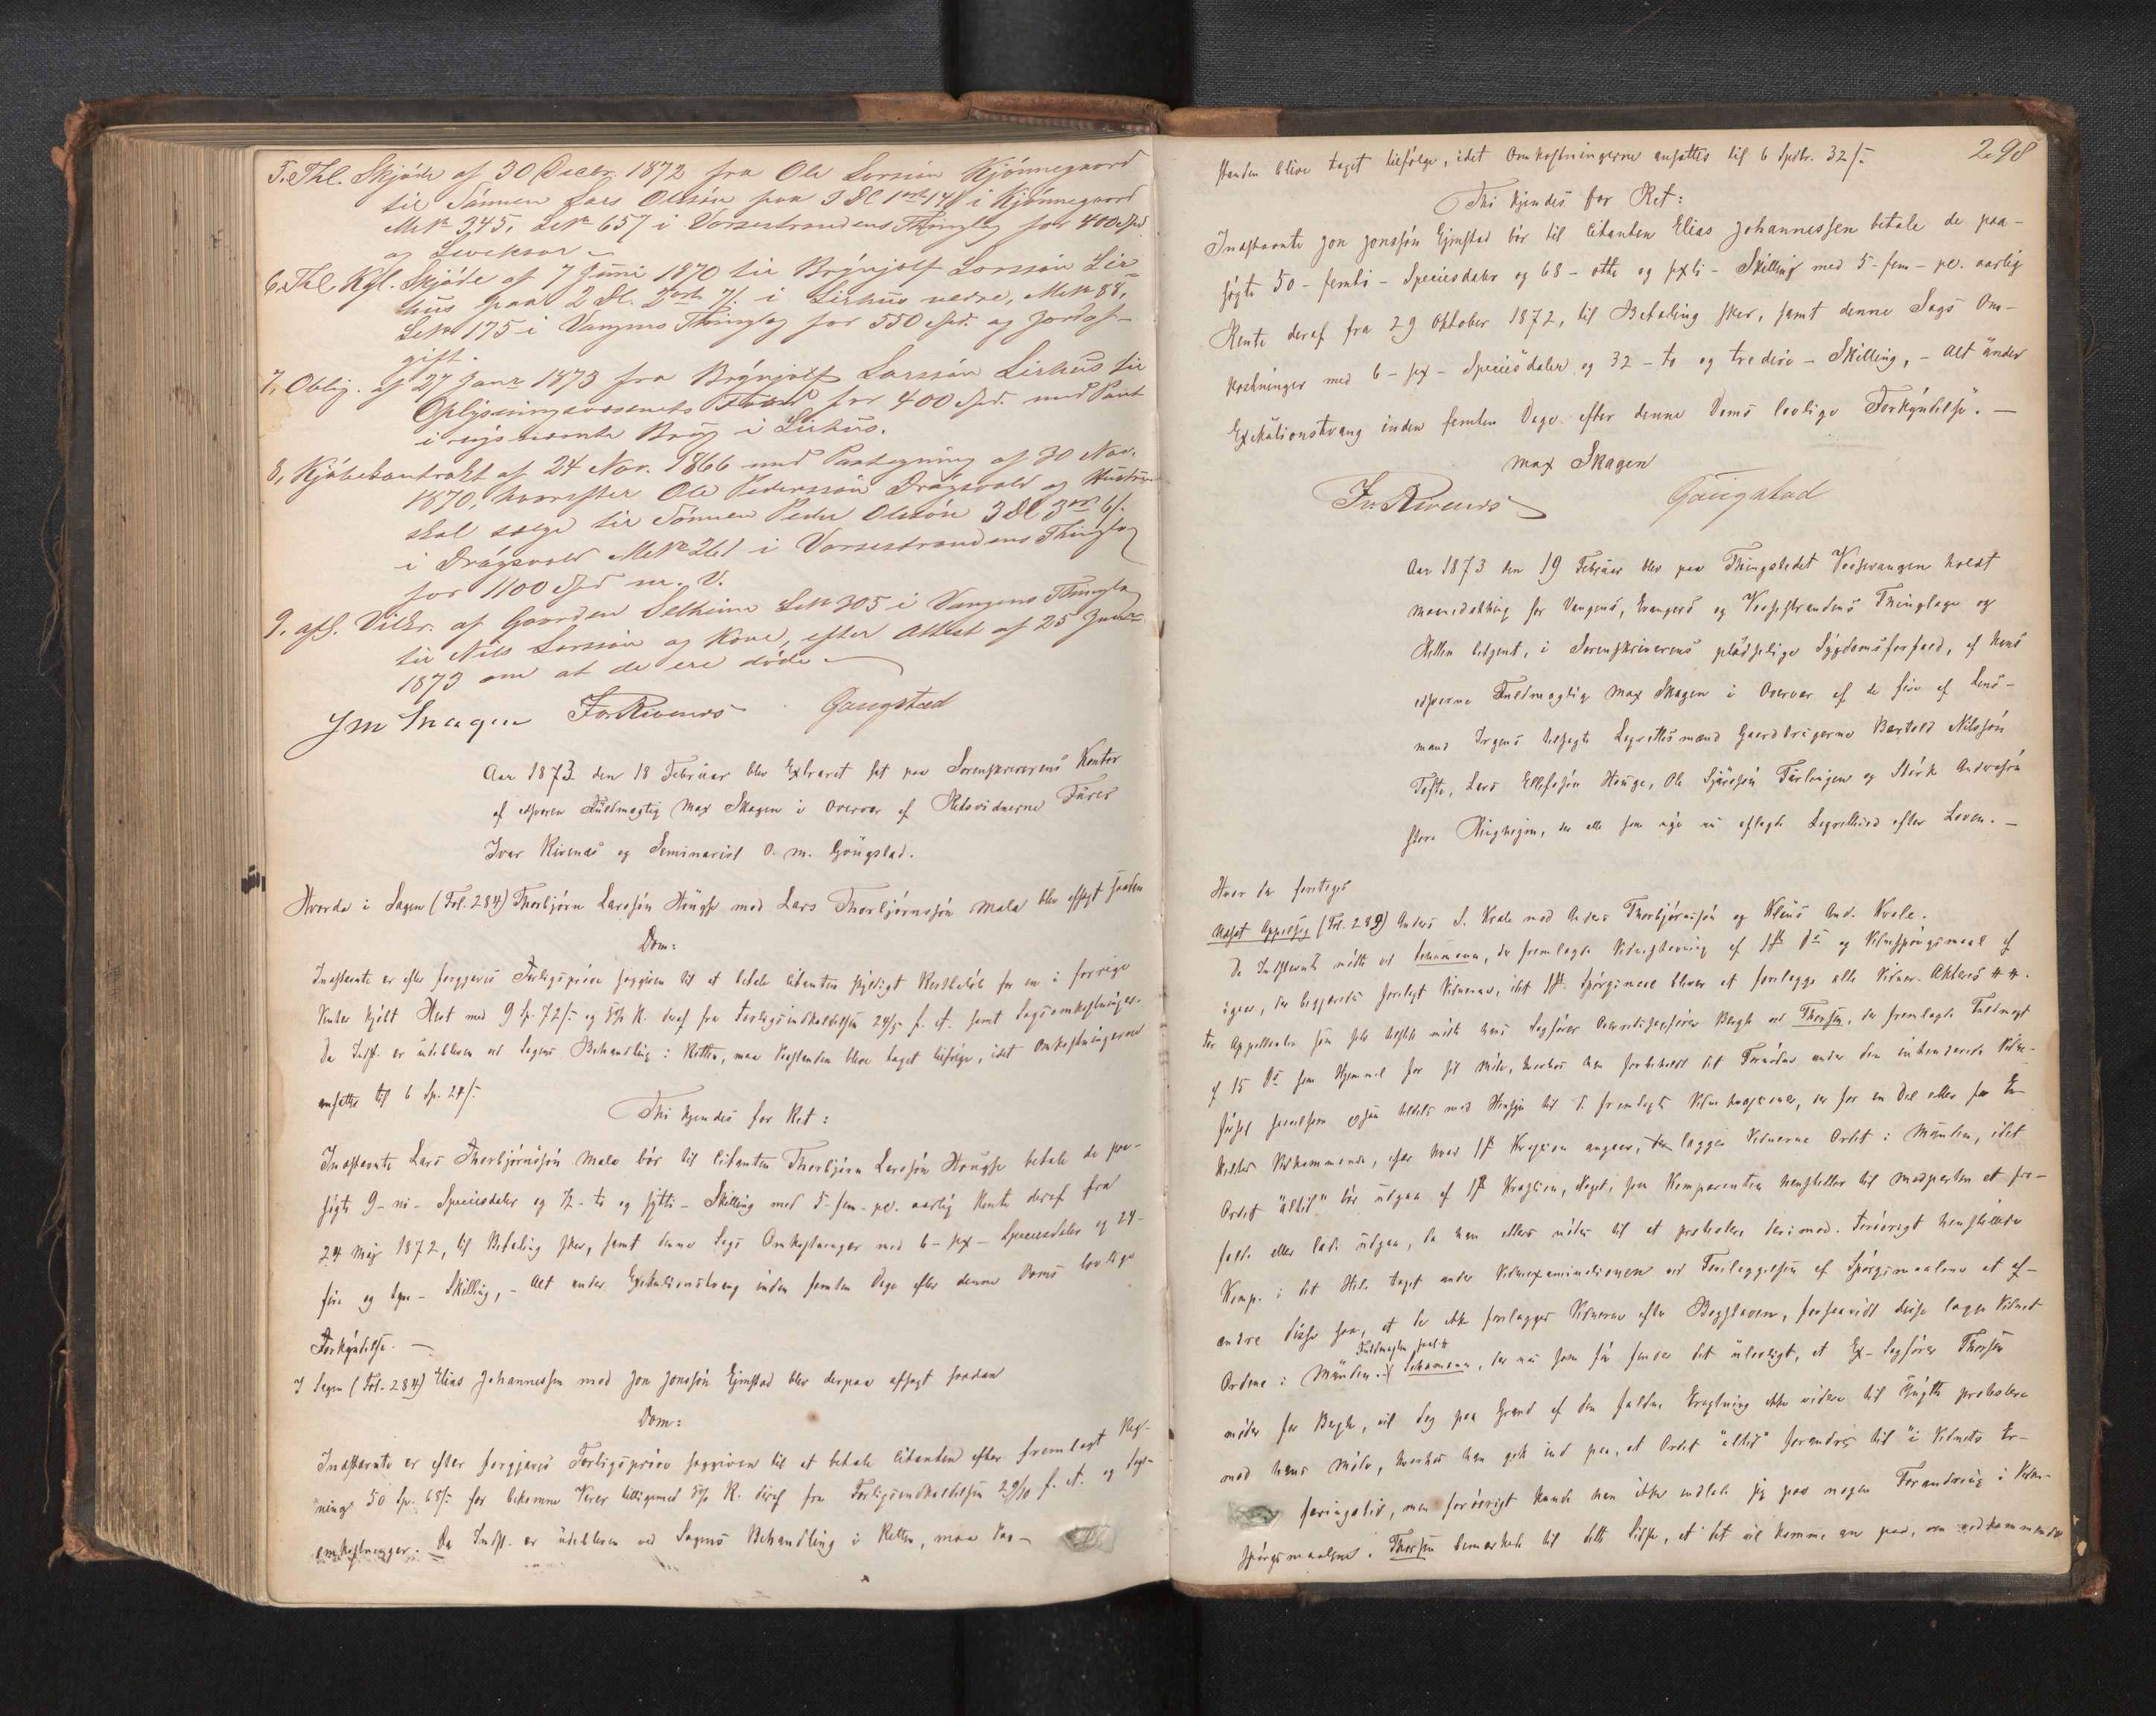 5. Thl. Skjøde af 30 Decbr. 1872 fra Ole Larssøn Kjønnegaard
til Sønnen Lars Olssøn paa 3 Sl 1 mrk 14 ß i Kjønnegaard
M.No 345, L.No 657 i Vorsestrandens Thinglag for 400 Spd
og Livekaar
6. Thl. Kgl. Skjøde af 7 Juni 1870 til Brynjolf Larssøn Lir-
hus paa 2 Sl. 2 ort 7 ß. i Lirhus nedre, M.No 88,
L.No 175 i Vangens Thinglag for 550 Spd. og Jordaf-
gift.
7. Oblig. af 27 Janr 1873 fra Brynjolf Larssøn Lirhus til
Oplysningsvæsenets Fond for 400 Spd. med Pant
i nysnævnte Brug i Lirhus.
8, Kjøbekontrakt af 24 Nov. 1866 med Paategning af 30 Nov.
1870, hvorefter Ole Pederssøn Drøgsvold og Hustru
skal sælge til Sønnen Peder Olssøn 3 Sl 3 mrk 6 ß.
i Drøgsvold M.No 261 i Vorsestrandens Thinglag
for 1100 Spd m. V.
9. afl. Vilkr. af Gaarden Selheim L.No 305 i Vangens Thinglag
til Nils Larssøn og Kone, efter Attest af 25 Janr
1873 om at de ere døde
J M Skagen Ivr Rivenes Gaugstad
Aar 1873 den 18 Februar blev Extraret sat paa Sorenskriverens Kontor
af edsvoren Fuldmægtig Max Skagen i Overvær af Retsvidnerne Fører
Ivar Rivenæs og Seminarist O. M. Gaugstad.
Hvorda i Sagen (Fol. 284) Thorbjørn Larssøn Hougse mod Lars Thorbjørnssøn Mala blev afsagt saadan
Dom:
Indstævnte er efter forgjæves Forligsprøve saggiven til at betale Citanten skyldigt Restbeløb for en i forrige
Vinter kjøbt Hest med 9 Sp. 72 ß og 5% R. deraf fra Forligsindkaldelsen 24/5 f. A. samt Sagsomkostninger.
Da Indst. er udebleven ved Sagens Behandling i Retten, maa Paastanden blive taget tilfølge, idet Omkostningerne
ansættes til 6 Sp. 24 ß
Thi kjendes for Ret:
Indstævnte Lars Thorbjørnssøn Mala bør til Citanten Thorbjørn Larssøn Hougse betale de paa-
søgte 9 - ni - Speciesdaler og 72 - to og sytti - Skilling med 5 - fem - pc. aarlig Rente deraf fra
24 Maj 1872, til Betaling sker, samt denne Sags Omkostninger med 6 - sex - Speciesdaler og 24 -
fire og tyve - Skilling, - Alt under Exekutionstvang inden femten Dage efter denne Doms lovlige
Forkyndelse. —
I Sagen (Fol. 284) Elias Johannessen mod Jon Jonssøn Gjmstad blev derpaa afsagt saadan
Dom:
Indstævnte er efter forgjæves Forligsprøve saggiven til at betale Citanten efter fremlagt Reg-
ning 50 Sp. 68 ß for bekomne Varer tilligemed 5% R. deraf fra Forligsindkaldelsen 29/10 f. A. og Sags-
omkostninger. Da Indst. er udebleven ved Sagens Behandling i Retten, maa Paa-
298
standen blive taget tilfølge, idet Omkostningerne ansættes til 6 Spdlr. 32 ß
Thi kjendes for Ret:
Indstævnte Jon Jonssøn Gjmstad bør til Citanten Elias Johannessen betale de paa-
søgte 50 - femti - Speciesdaler og 68 - otte og sexti - Skilling med 5 - fem - pc. aarlig
Rente deraf fra 29 Oktober 1872, til Betaling sker, samt denne Sags Om-
kostninger med 6 - sex - Speciesdaler og 32 - to og tredive - Skilling, - Alt under
Exekutionstvang inden femten Dage efter denne Doms lovlige Forkyndelse. —
Max Skagen
Ivr Rivenes Gaugstad
Aar 1873 den 19 Februar blev paa Thingstedet Vossevangen holdt
Maanedsthing for Vangens, Evangers og Vossestrandens Thinglage og
Retten betjent, i Sorenskriverens pludselige Sygdomsforfald, af hans
edsvorne Fuldmægtig Max Skagen i Overvær af de fire af Lens-
mand Irgens tilsagte Lagrettesmænd Gaardbrugerne Bartold Nilssøn
Tofte, Lars Ellefssøn Houge, Ole Sjurssøn Førlingen og Størk Andersøn
store Ringheim, der alle som nye nu aflagde Lagretteed efter Loven. —
Hvor da foretoges
Udsat Appelsag (Fol. 289) Anders S. Kvale mod Anders Thorbjørnssøn og Klaus And. Kvale.
De Indstævnte mødte ved Schumann, der fremlagde Vidnestævning af 1ste ds og Vidnespørgsmaal af
igaar, der begjæredes forelagt Vidnerne, idet 1ste Spørgsmaal bliver at forelægge alle Vidner. Akteres ##.
For Appellanten som selv tilstede mødte hans Sagfører Overretssagfører Bergh ved Thorsen, der fremlagde Fuldmagt
af 15 ds som Hjemmel for sit Møde, hvorhos han forbeholdt sit Fornødne under den intenderede Vidne-
førsel
Retten Vedkommende, især hvad 1ste Kvæstion angaar, lægges Vidnerne Ordet i Munden, idet
Ordet "altid" bør udgaa af 1ste Kvæstion, Noget, som Komparenten henstiller til Modparten at fra-
falde eller lade udgaa, da han ellers nødes til at protestere derimod. Forøvrigt henstillede
Komp. i det Hele taget under Vidneexaminationen ved Forelæggelsen af Spørgsmaalene at af-
ændre disse saa, at de ikke forelægges Vidnerne efter Bogstaven, forsaavidt disse lægge Vidnet
Ordene i Munden. Schumann, der nu som før finder det ulovligt, at Ex-Sagfører Thorsen
møder for Bergh, vil dog paa Grund af den faldne Eragtning ikke videre til Unytte protestere
mod hans Møde, hvorhos han gik ind paa, at Ordet "altid" forandres til "i Vidnets Er-
faringstid, men forøvrigt kunde han ikke indlade sig paa nogen Forandring i Vidne-
spørgsmaalene. Thorsen bemærkede til dette Sidste, at det vil komme an paa, om vedkommende